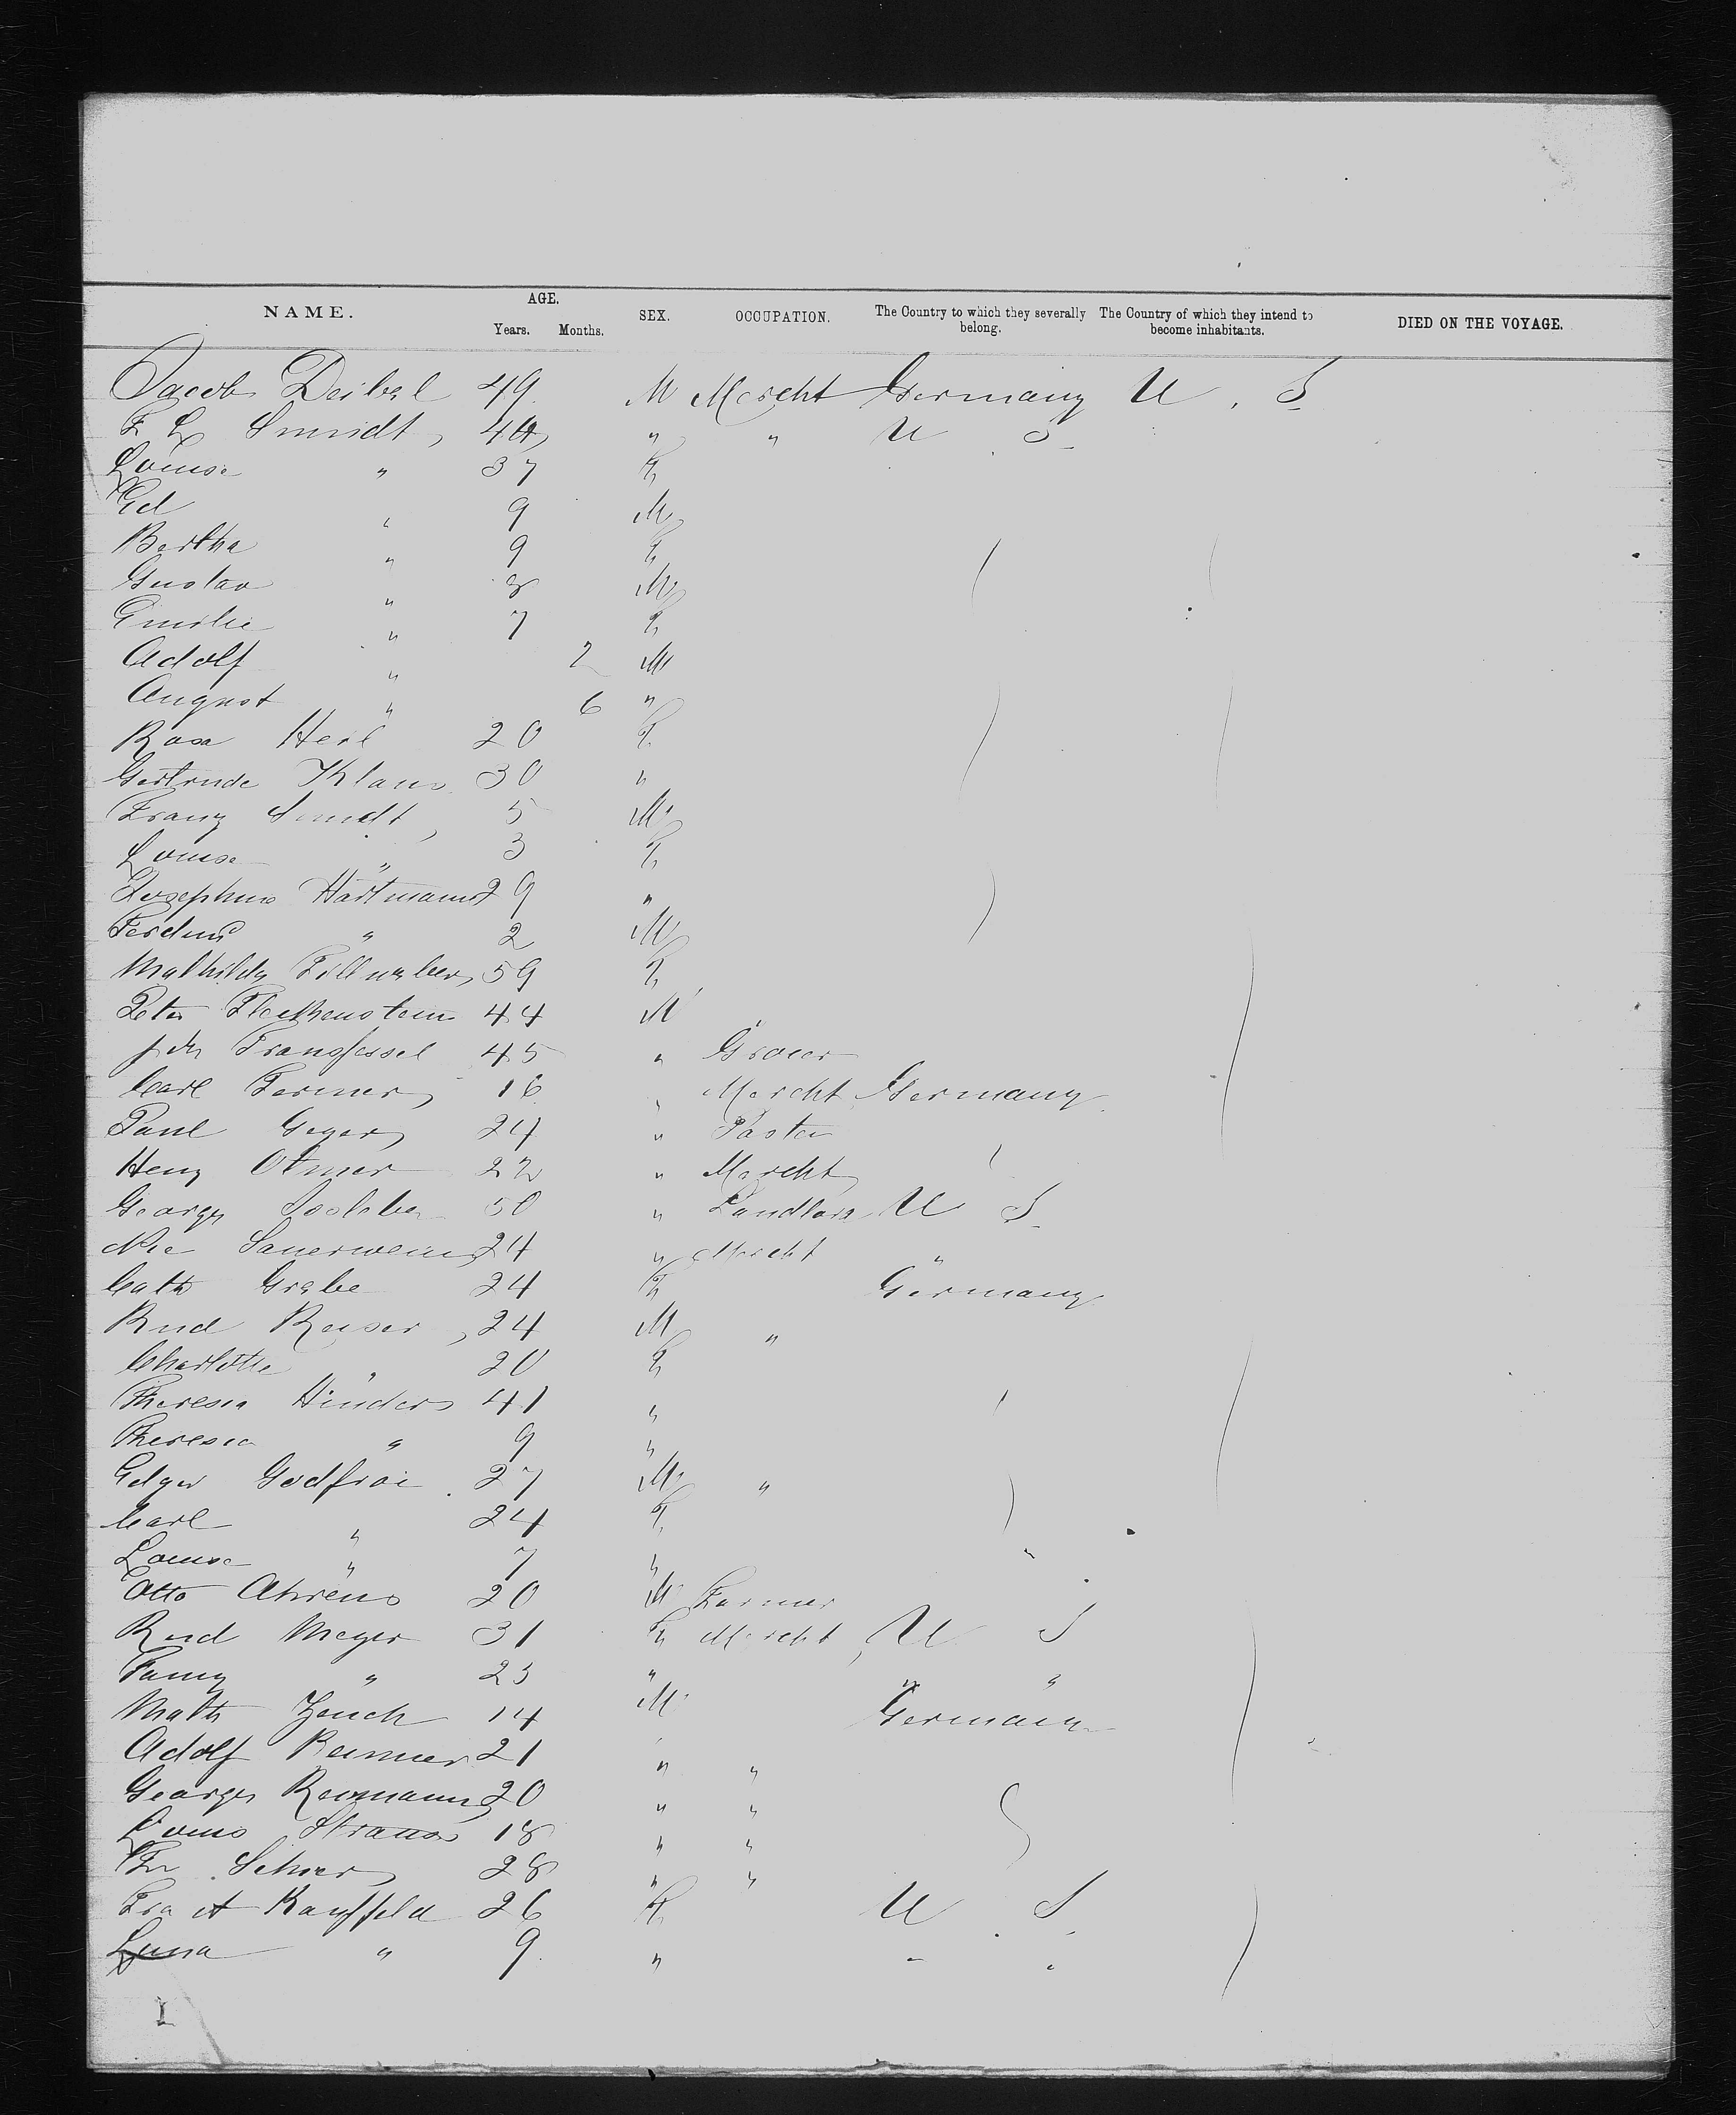 NAME. AGE. Years. Months. SEX. OCCUPATION. The Country to which they severally belong. The Country of which they intend to become inhabitants. DIED ON THE VOYAGE.
Jacob Deibel 49 M Mercht Germany U. S
F L Smidt, 44, " " U S
Louise " 37 F
Ed " 9 M
Bertha " 9 F
Gustav " 8 M
Emilie " 7 F
Adolf " 2 M
August " 6 "
Rosa Heil 20 F
Gertrude Klaus 30 "
Franz Smidt, 5 M
Louise " 3 F
Josephine Hartmann 29 "
Ferdind " 2 M
Mathilde 59 F
Peter Fleckenstein 44 M
45 " Grocer
Carl Fermer 16 " Mercht Germany
Paul Geyer 24 " Pastor
Heny Otmer 22 " Mercht
Georg 50 " Landlord U S
Nic Sauerwein 24 " Mercht "
Cath Grabe 24 F Germany
Rud Reiser, 24 M "
Charlotte " 20 F
Theresia Hinders 41 "
Theresia " 9 "
Edgar Godfroi 27 M "
Carl " 24 F
Louise " 7 "
Otto Ahrens 20 M Farmer
Rud Meyer 31 F Mercht U S
Fanny " 25 " " "
Math Zench 14 M Germany
Adolf Remmer 21 " "
Georg Reumann 20 " "
Louis Strauss 18 " "
Fr Schier 28 " "
Fra A Kauffeld 26 F U S
" 9 " " "